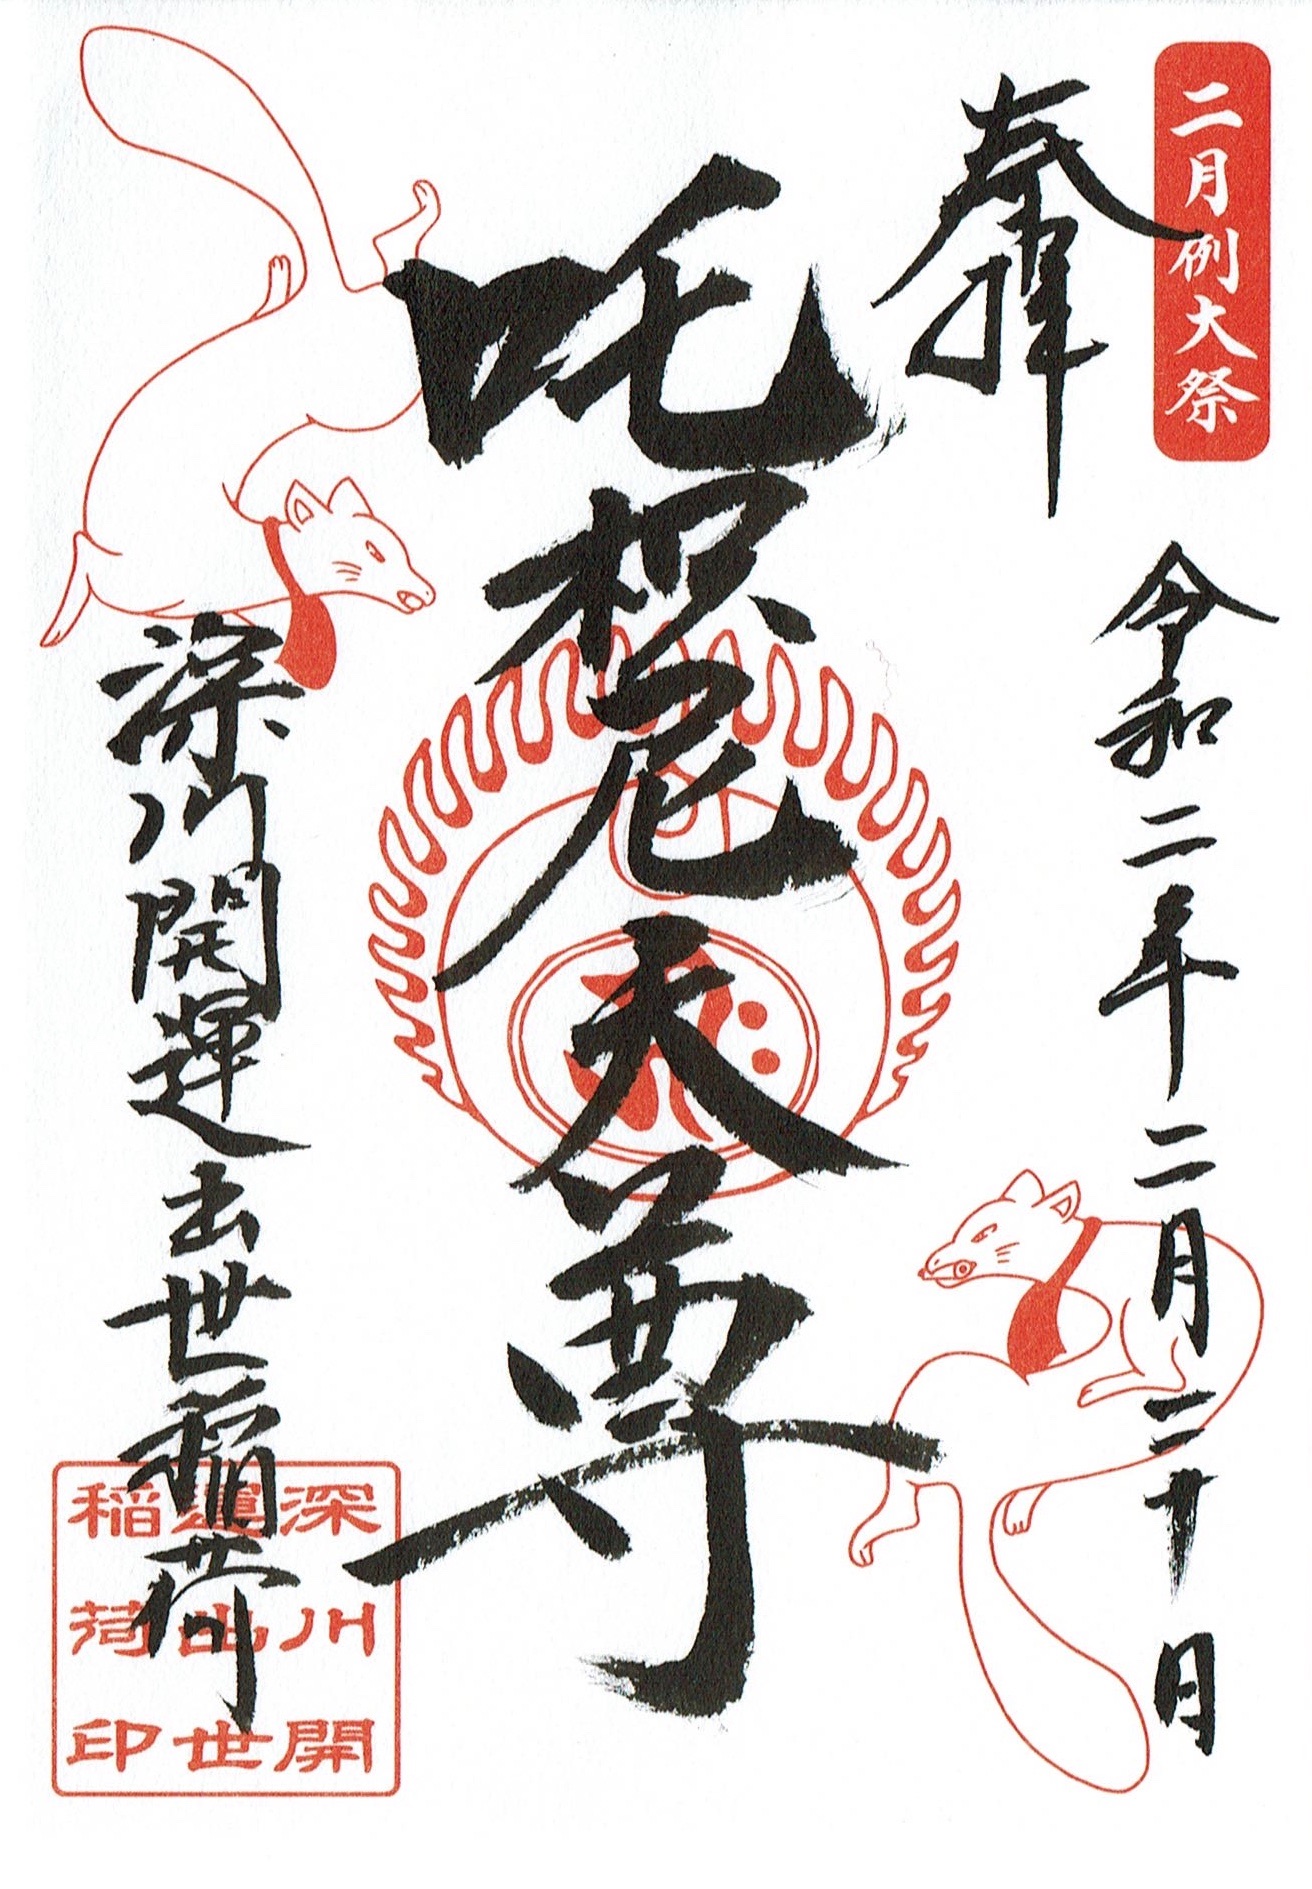 二月例大祭
奉拝
令和二年二月二十日
吒枳尼天尊
深川開運出世稲荷
深川開
運出世
稲荷印